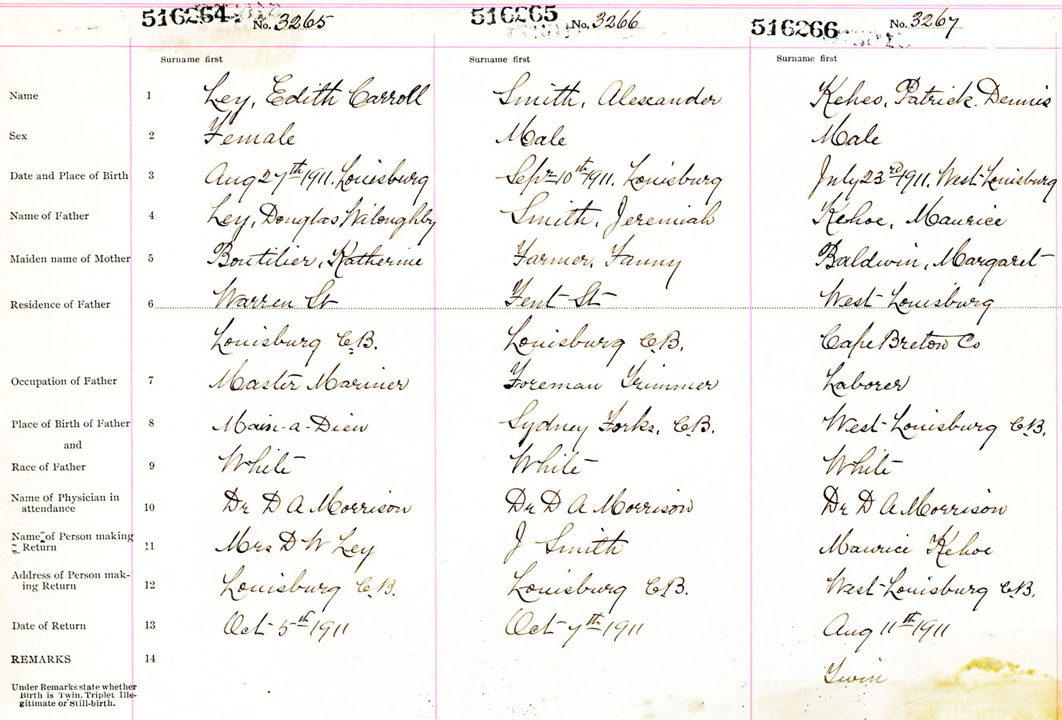 516264 No. 3265 516265 No. 3266 516266 No. 3267
Surname first Surname first Surname first
Name 1 Ley, Edith Carroll Smith, Alexander Keheo, Patrick Dennis
Sex 2 Female Male Male
Date and Place of Birth 3 Aug 27th 1911. Louisburg Sept 10th 1911. Louisburg July 23rd 1911. West Louisburg
Name of Father 4 Ley, Douglas Wiloughby Smith, Jeremiah Kehoe, Maurice
Maiden name of Mother 5 Boutilier, Katherine Farmer, Fanny Baldwin, Margaret
Residence of Father 6 Warren St Fent St West Louisburg
Louisburg C.B. Louisburg C.B. Cape Breton Co
Occupation of Father 7 Master Mariner Foreman Trimmer Laborer
Place of Birth of Father 8 Main-a-Dieu Sydney Forks, C.B. West Louisburg C.B.
and
Race of Father 9 White White White
Name of Physician in
attendance 10 Dr D A Morrison Dr D A Morrison Dr D A Morrison
Name of Person making
Return 11 Mrs D W Ley J Smith Maurice Kehoe
Address of Person mak-
ing Return 12 Louisburg C.B. Louisburg C.B. West Louisburg C.B.
Date of Return 13 Oct 5th 1911 Oct 7th 1911 Aug 11th 1911
REMARKS 14
Twin
Under Remarks state whether
Birth is Twin, Triplet Ille-
gitimate or Still-birth.